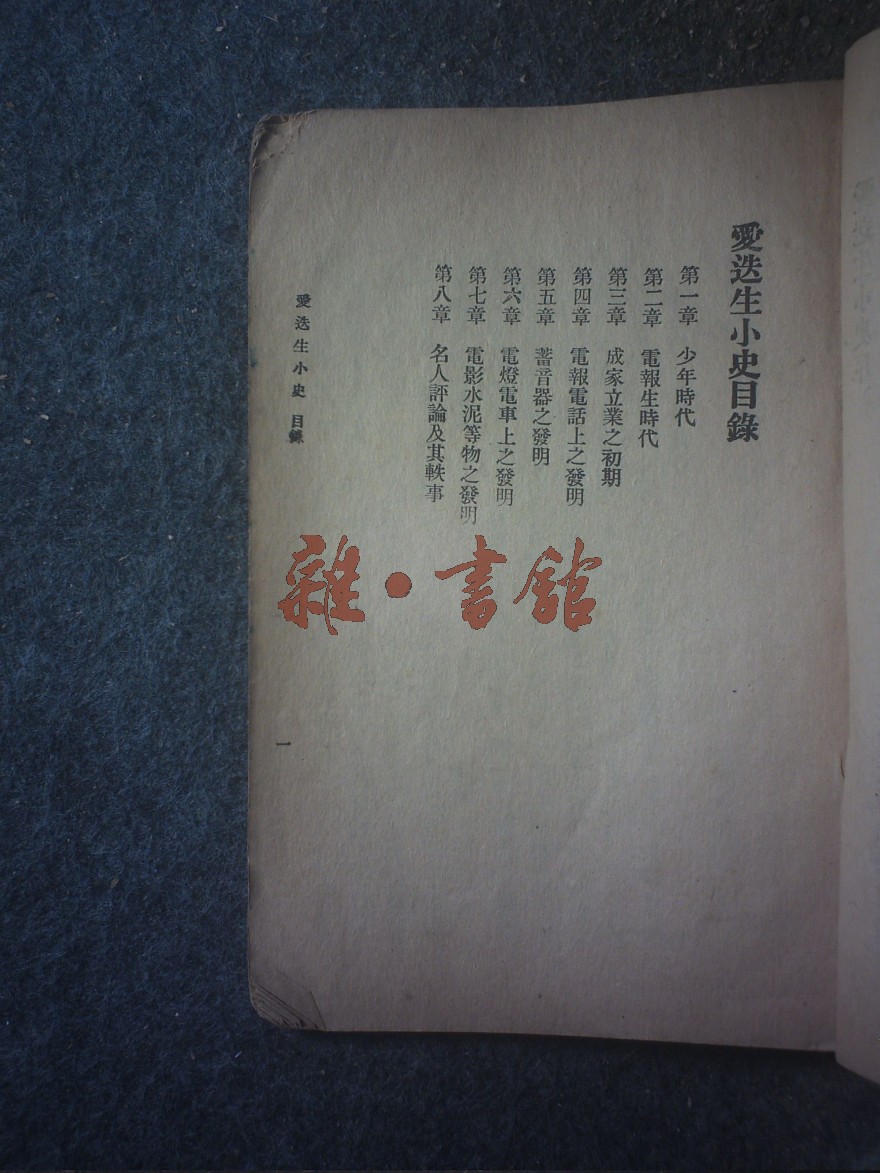 愛迭生小史目錄
第一章 少年時代
第二章 電報生時代
第三章 成家立業之初期
第四章 電報電話上之發明
第五章 蓄音器之發明
第六章 電燈電車上之發明
第七章 電影水泥等物之發明
第八章 名人評論及其軼事
愛迭生小史 目錄
一
雜·書館